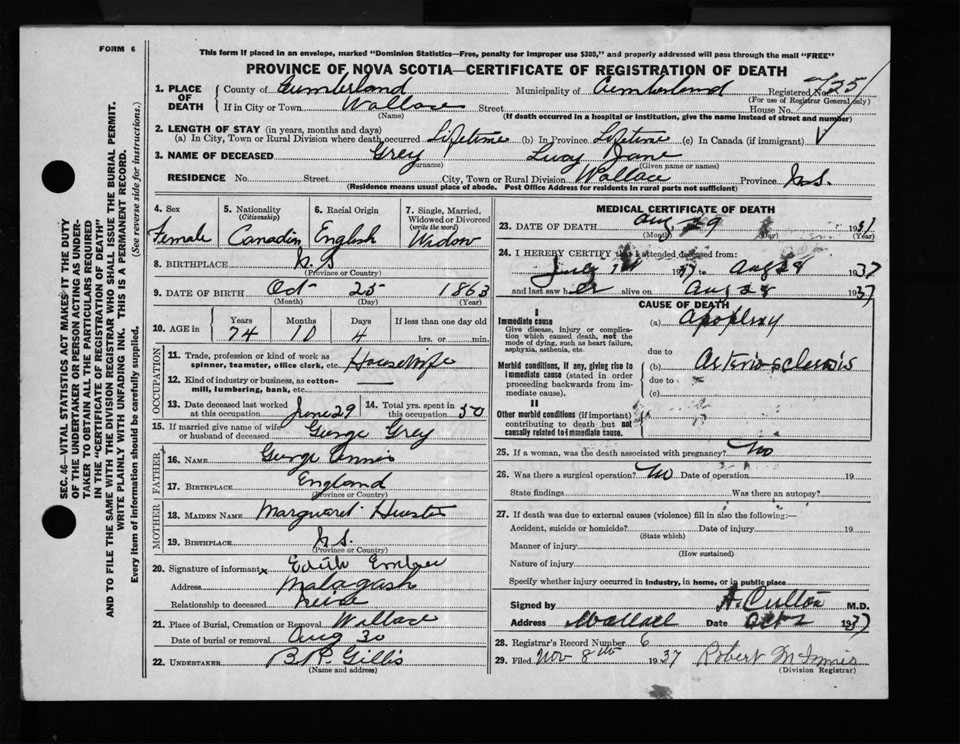 FORM 6
This form if placed in an envelope, marked "Dominion Statistics—Free, penalty for improper use $300," and properly addressed will pass through the mail "FREE"
PROVINCE OF NOVA SCOTIA—CERTIFICATE OF REGISTRATION OF DEATH
1. PLACE OF DEATH
County of Cumberland Municipality of Cumberland Registered No. 251
(For use of Registrar General only)
If in City or Town Wallace Street House No.
(Name) (If death occurred in a hospital or institution, give the name instead of street and number)
2. LENGTH OF STAY (in years, months and days)
(a) In City, Town or Rural Division where death occurred Lifetime (b) In Province Lifetime (c) In Canada (if immigrant)
3. NAME OF DECEASED Grey Lucy Jane
(Surname) (Given name or names)
RESIDENCE No. Street City, Town or Rural Division Wallace Province N.S.
(Residence means usual place of abode. Post Office Address for residents in rural parts not sufficient)
4. Sex Female
5. Nationality (Citizenship) Canadin
6. Racial Origin English
7. Single, Married, Widowed or Divorced (write the word) Widow
8. BIRTHPLACE N.S
(Province or Country)
9. DATE OF BIRTH Oct- 25- 1863
(Month) (Day) (Year)
10. AGE in Years Months Days If less than one day old
74 10 4 hrs. or min.
OCCUPATION
11. Trade, profession or kind of work as spinner, teamster, office clerk, etc. HouseWife
12. Kind of industry or business, as cotton-mill, lumbering, bank, etc. —
13. Date deceased last worked at this occupation June 29
14. Total yrs. spent in this occupation 50
15. If married give name of wife or husband of deceased George Grey
FATHER
16. NAME George Annis
17. BIRTHPLACE England
(Province or Country)
MOTHER
18. MAIDEN NAME Marguaret
19. BIRTHPLACE N.S.
(Province or Country)
20. Signature of informant x Edith
Address Malagash
Relationship to deceased
21. Place of Burial, Cremation or Removal Wallace
Date of burial or removal Aug 30
22. UNDERTAKER B.R. Gillis
(Name and address)
MEDICAL CERTIFICATE OF DEATH
23. DATE OF DEATH Aug 29 1937
(Month) (Day) (Year)
24. I HEREBY CERTIFY that I attended deceased from:
July 1st 1937 to Aug 28 1937
and last saw her alive on Aug 28 1937
CAUSE OF DEATH
I
Immediate cause
Give disease, injury or complication which caused death, not the mode of dying, such as heart failure, asphyxia, asthenia, etc.
(a) Apoplexy
due to
Morbid conditions, if any, giving rise to immediate cause (stated in order proceeding backwards from immediate cause).
(b) Arteriosclerosis
due to
(c)
II
Other morbid conditions (if important) contributing to death but not causally related to immediate cause.
25. If a woman, was the death associated with pregnancy? No
26. Was there a surgical operation? No Date of operation 19
State findings Was there an autopsy?
27. If death was due to external causes (violence) fill in also the following:—
Accident, suicide or homicide? Date of injury 19
(State which)
Manner of injury
(How sustained)
Nature of injury
Specify whether injury occurred in industry, in home, or in public place
Signed by A. Cullton M.D.
Address Wallace Date Oct 2 1937
28. Registrar's Record Number 6
29. Filed Nov 8th 1937 Robert McInnis
(Division Registrar)
SEC. 46—VITAL STATISTICS ACT MAKES IT THE DUTY
OF THE UNDERTAKER OR PERSON ACTING AS UNDER-
TAKER TO OBTAIN ALL THE PARTICULARS REQUIRED
IN THE "CERTIFICATE OF REGISTRATION OF DEATH"
AND TO FILE THE SAME WITH THE DIVISION REGISTRAR WHO SHALL ISSUE THE BURIAL PERMIT.
WRITE PLAINLY WITH UNFADING INK. THIS IS A PERMANENT RECORD.
Every item of information should be carefully supplied. (See reverse side for instructions.)